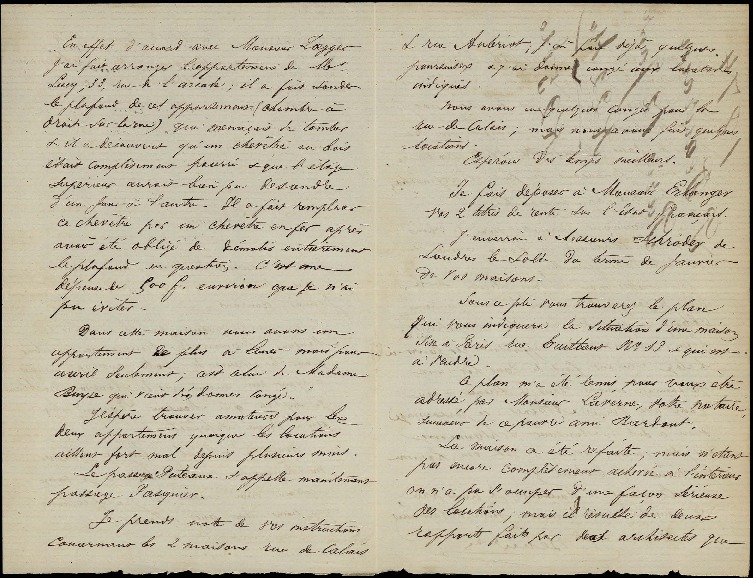 En effet d'accord avec Monsieur
j'ai fait arranger l'appartement de Mr
Lucy, 33, rue de l'arcade; il a fait sonder
le plafond de cet appartement (chambre à
droite sur la rue) qui menaçait de tomber
& il a découvert qu'un chevêtre en bois
était complètement pourri & que l'étage
supérieur aurait bien pu descendre
d'un jour à l'autre. Il a fait remplacer
ce chevêtre par un chevêtre en fer après
avoir été obligé de démolir entièrement
le plafond en question. C'est une
dépense de 900 f. environ que je n'ai
pu éviter.
Dans cette maison nous avons un
appartement de plus à louer mais pour
avril seulement; c'est celui de Madame
qui vient de donner congé.
J'espère trouver amateurs pour les
deux appartements quoique les locations
aillent fort mal depuis plusieurs mois.
Le passage Puteaux s'appelle maintenant
passage Pasquier.
Je prends note de vos instructions
concernant les 2 maisons rue de Calais
& rue Aubriot, j'ai fait déjà quelques
poursuites & j'ai donné congé aux locataires
indiqués.
Nous avons eu quelques congés pour la
rue de Calais; mais nous avons fait quelques
locations.
Espérons des temps meilleurs.
Je fais déposer à Monsieur Erlanger
vos 2 titres de rente sur l'état français.
J'enverrai à Messieurs Schröder de
Londres le solde du terme de Janvier
de vos maisons.
Sous ce pli vous trouverez le plan
qui vous indiquera la situation d'une maison
sise à Paris rue No 13 & qui est
à vendre.
Ce plan m'a été remis pour vous être
adressé par Monsieur Laverne, votre notaire,
successeur de ce pauvre ami
La maison a été refaite, mais n'étant
pas encore complètement achevée à l'intérieur
on n'a pu s'occuper d'une façon sérieuse
des locations; mais il résulte de deux
rapports faits par deux architectes que